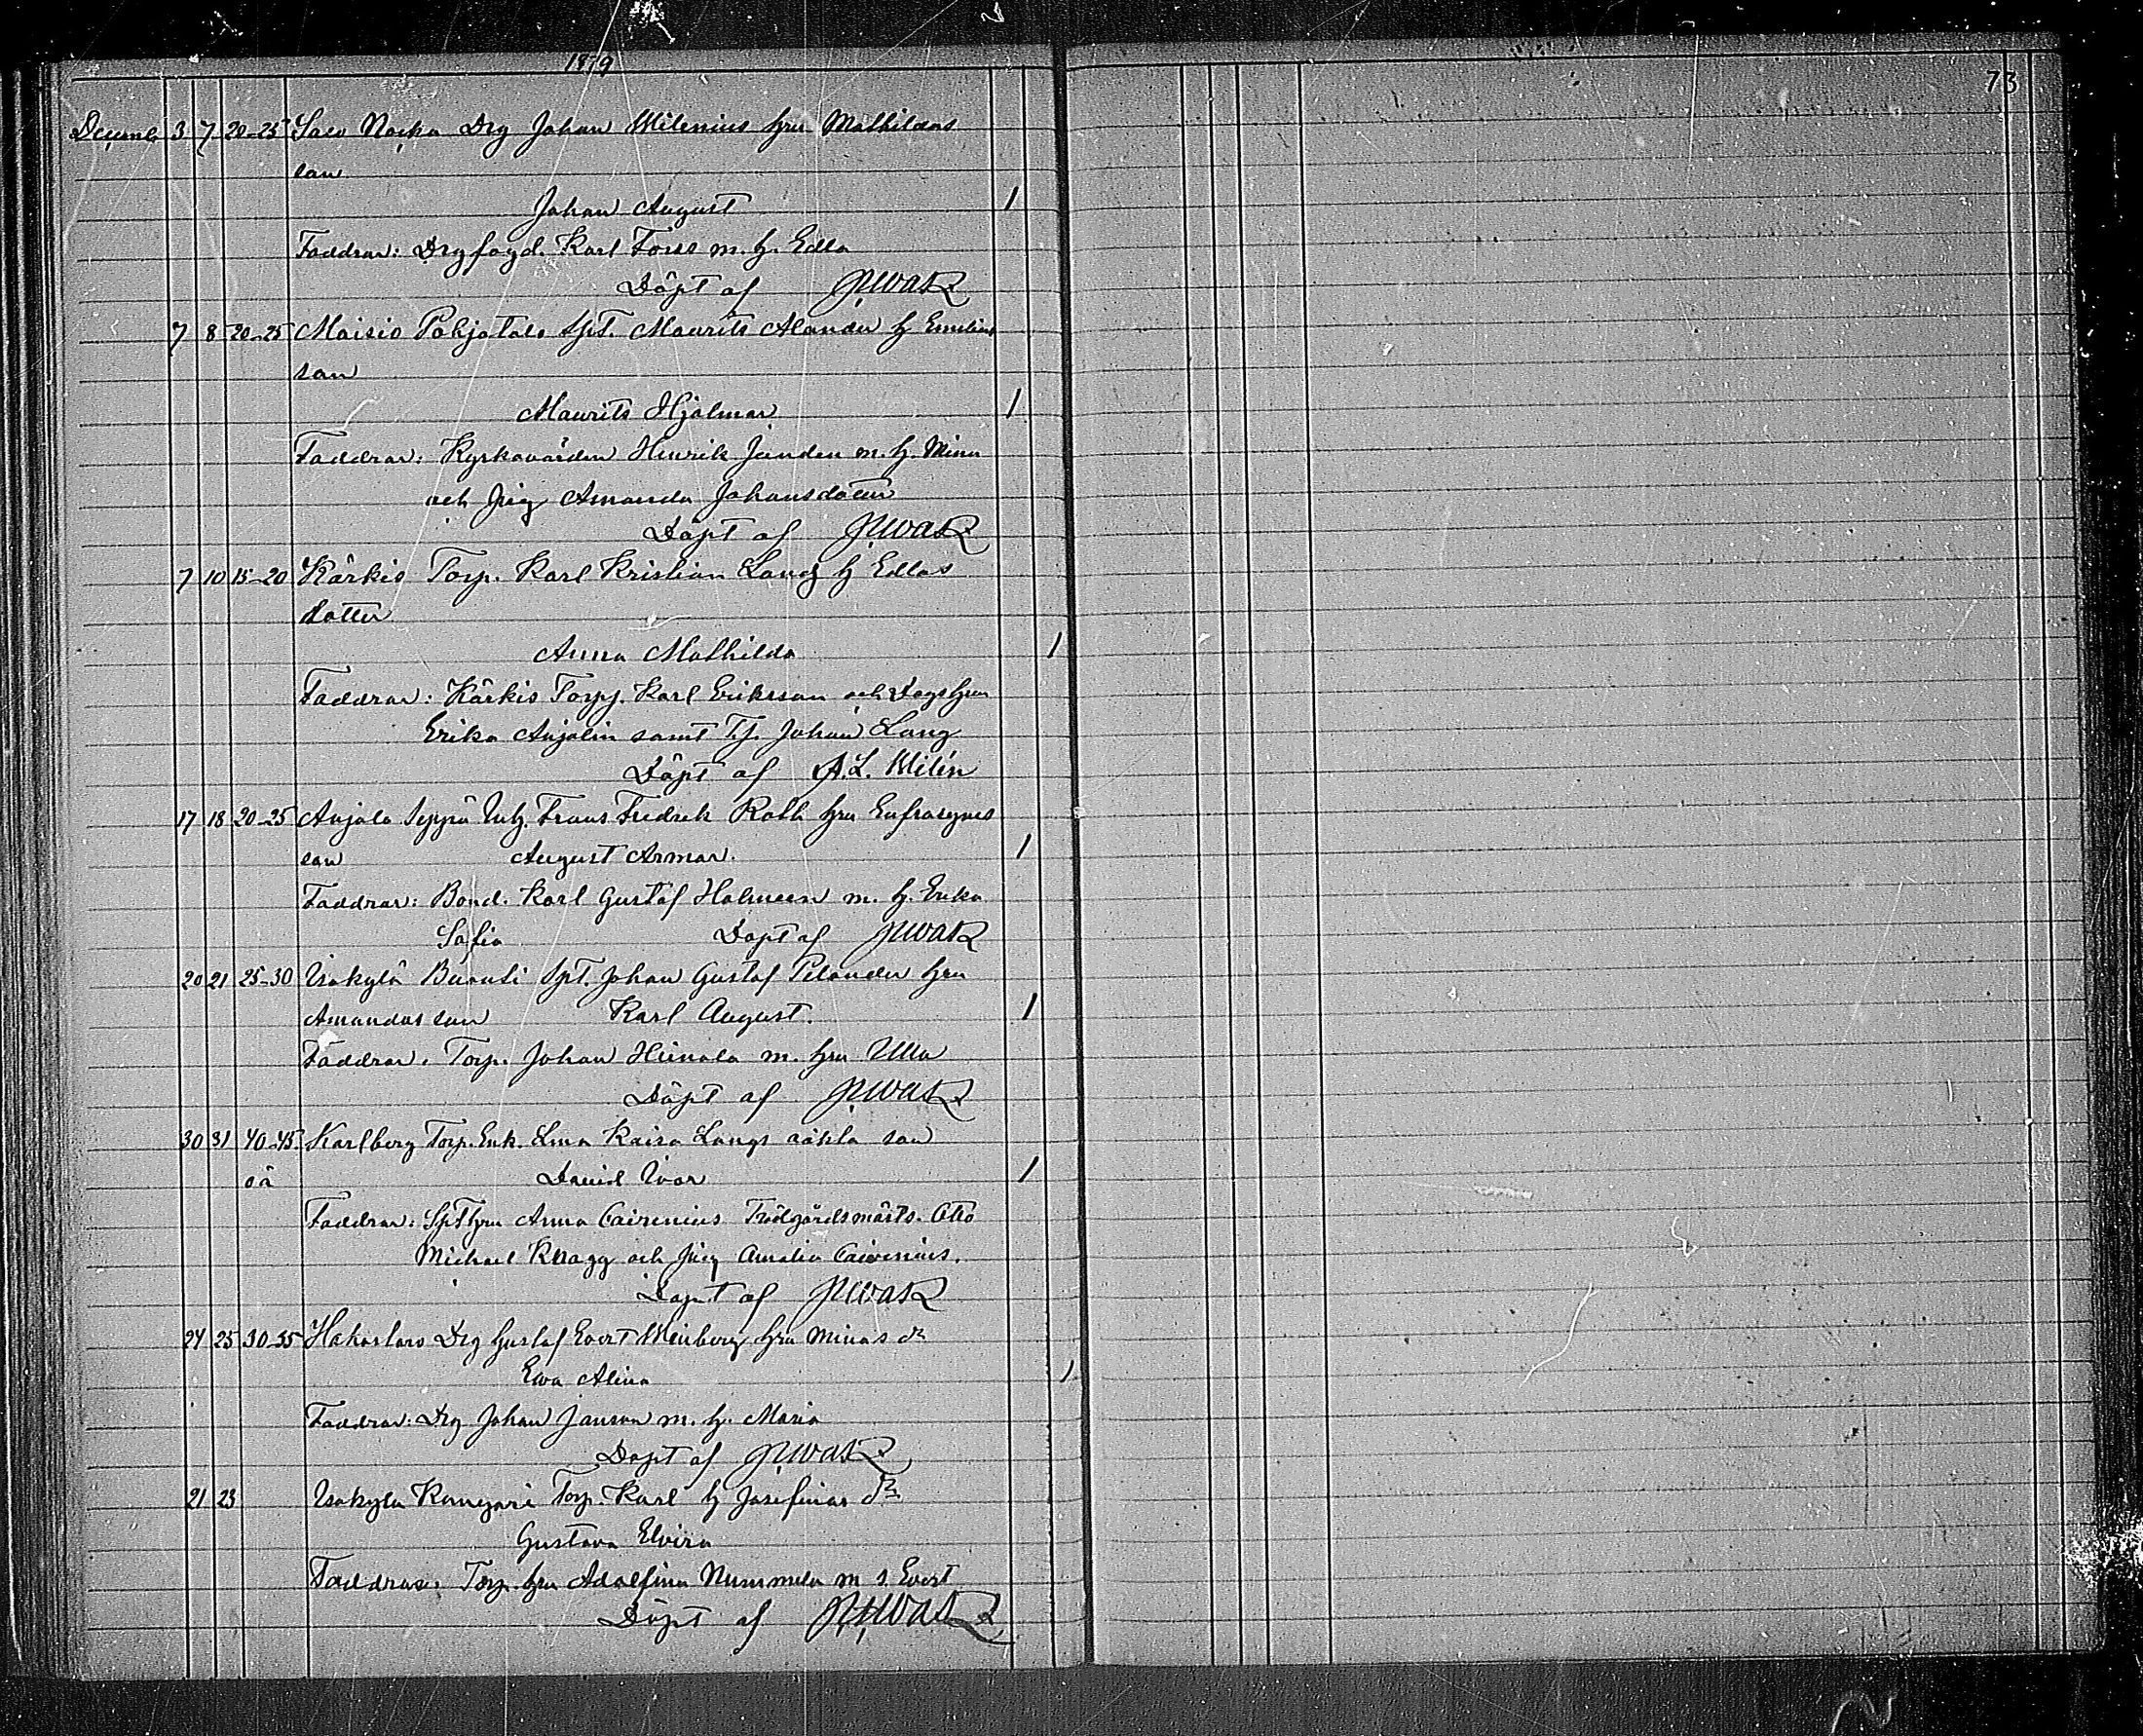 1879
73
Decemb 3 7 20-25 Salo Nacka Drg Johan Wilenius hru Mathildas
son
Johan August 1
Faddrar: Drgfogd. Karl Forss m. h. Edla
Döpt af
7 8 20-25 Maisio Pohjatalo Spt. Maurits Alander h Emilias
son
Maurits Hjalmar 1
Faddrar: Kyrkovärden Henrik Janden m. h. Mina
och Pig Amanda Johansdotter
Döpt af
7 10 15-20 Kärkis Torp. Karl Kristian Lang h Edlas
dotter
Anna Mathilda 1
Faddrar: Kärkis Torp. Karl Eriksson och Dagshru
Erika Anjalin samt Tj. Johan Lang
Döpt af A. L. Wilén
17 18 20-25 Anjala Seppä Inh. Frans Fredrek Roth hru Eufrosynes
son August Armar. 1
Faddrar: Bond. Karl Gustaf Holmeen m. h. Erika
Sofia Döpt af
20 21 25-30 Isokylä Spt. Johan Gustaf Pelander hru
Amandas son Karl August. 1
Faddrar. Torp. Johan Heinola m. hru Ulla
Döpt af
30 31 40-45 Karlberg Torp. Enk. Lina Kaisa Langs oäkta son
oä David Ivar 1
Faddrar: Spthru Anna Cairenius Trädgårdsmäst. Otto
Michael Knagg och Pig Amalia Cairenius.
Döpt af
24 25 30-35 Hakostaro Drg Gustaf Evert Weinberg hru Minas dr
Ewa Alina 1
Faddrar: Drg Johan Janson m. h. Maria
Döpt af
21 23 Isokylä Kangari Torp. Karl h Josefinas dr
Gustava Elvira
Faddrar: Torp. hru Adolfina Nummela m s. Evert
Döpt af